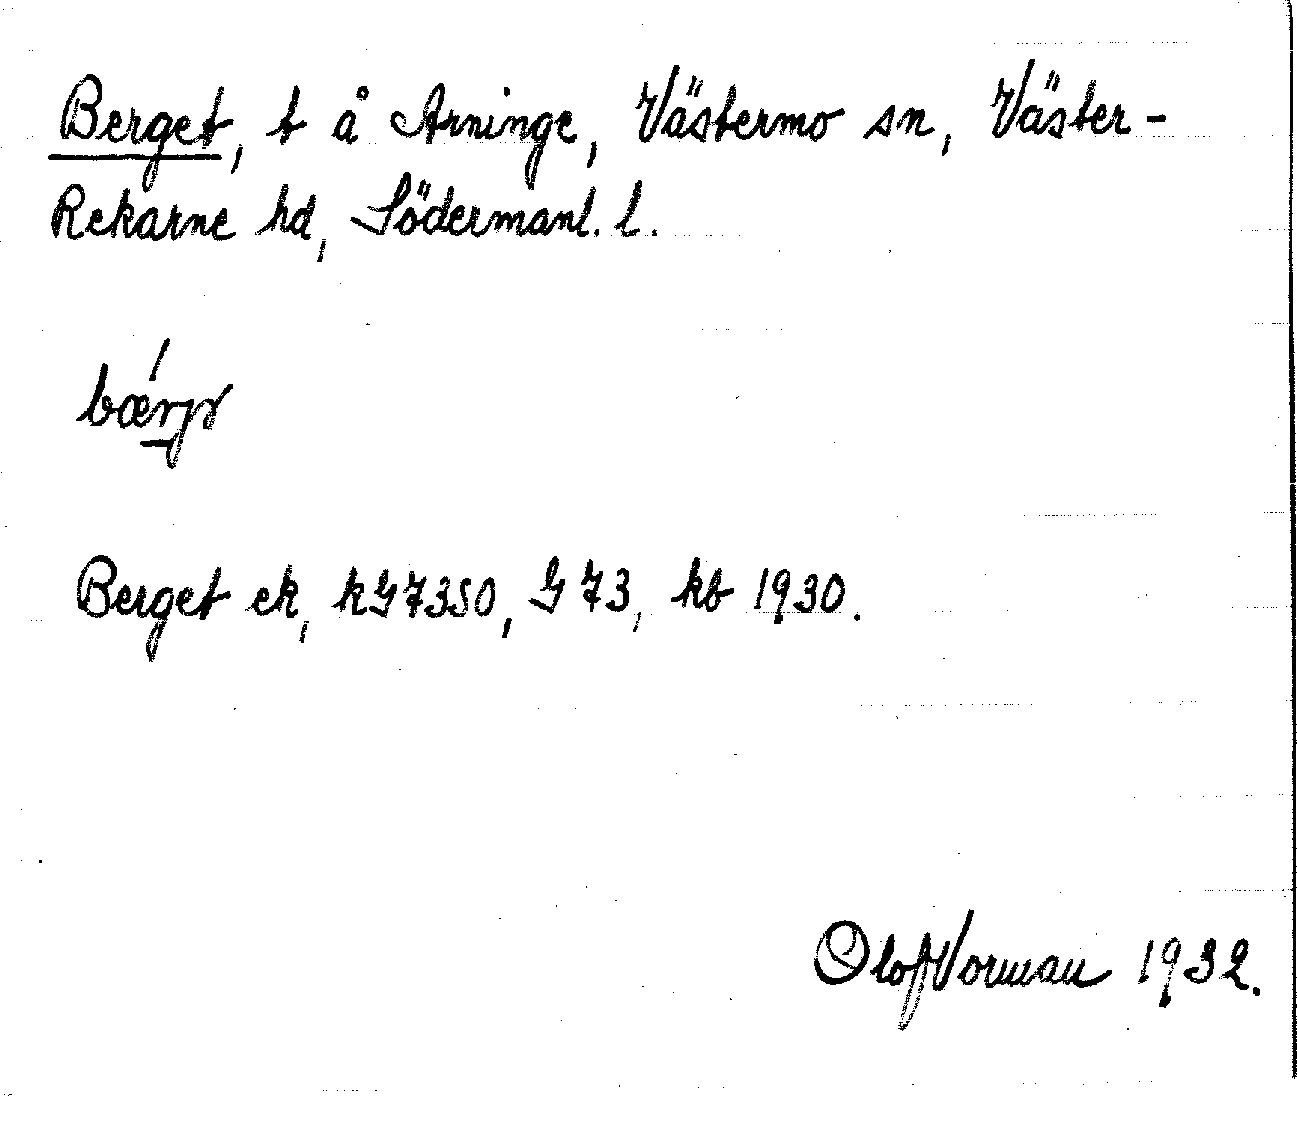 Berget, t å Arninge, Västermo sn, Väster-
Rekarne hd, Södermanl. l.
Berget ek, kG7350, G 73, kb 1930.
Olof Norman 1932.